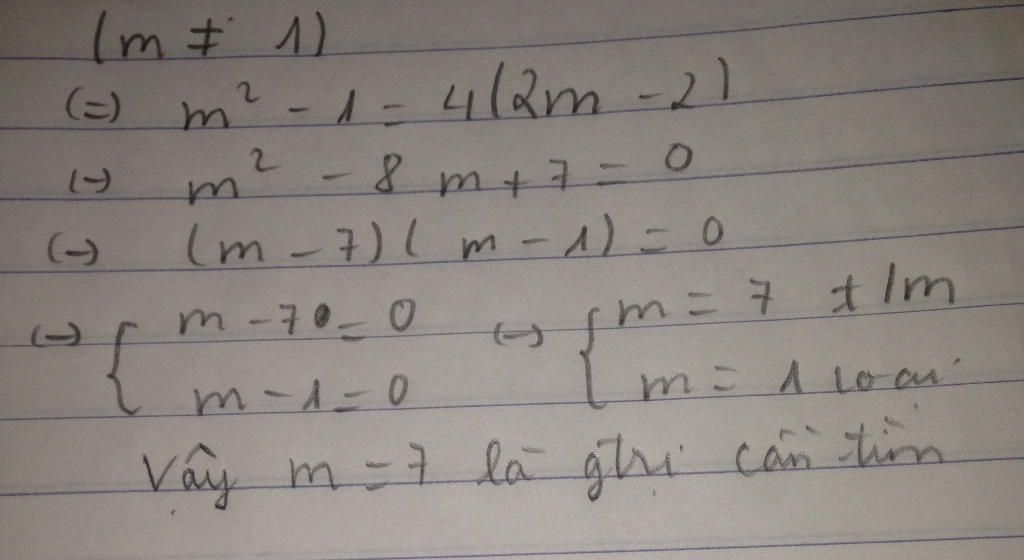 (m ≠ 1)
(=) m² - 1 = 4(2m - 2)
(-) m² - 8 m + 7 = 0
(-) (m - 7)( m - 1) = 0
(-) { m - 7 = 0 (-) { m = 7 t/m
m - 1 = 0 m = 1 loại
Vậy m = 7 là gtrị cần tìm